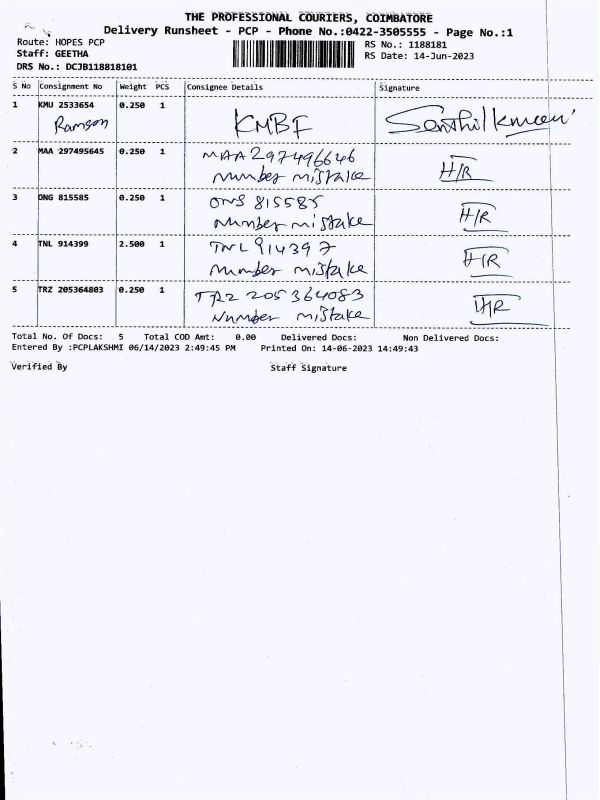 THE PROFESSIONAL COURIERS, COIMBATORE
Delivery Runsheet - PCP - Phone No.:0422-3505555 - Page No.:1
Route: HOPES PCP
Staff: GEETHA
DRS No.: DCJB118818101
RS No.: 1188181
RS Date: 14-Jun-2023
S No Consignment No Weight PCS Consignee Details Signature
1 KMU 2533654 0.250 1
Ramson KMBF Senthil kumar
2 MAA 297495645 0.250 1 MAA 297496646
Number mistake H/R
3 ONG 815585 0.250 1 ONS 815585
Number mistake H/R
4 TNL 914399 2.500 1 TNL 914397
Number mistake H/R
5 TRZ 205364803 0.250 1 TRZ 205364083
Number mistake H/R
Total No. Of Docs: 5 Total COD Amt: 0.00 Delivered Docs: Non Delivered Docs:
Entered By :PCPLAKSHMI 06/14/2023 2:49:45 PM Printed On: 14-06-2023 14:49:43
Verified By Staff Signature